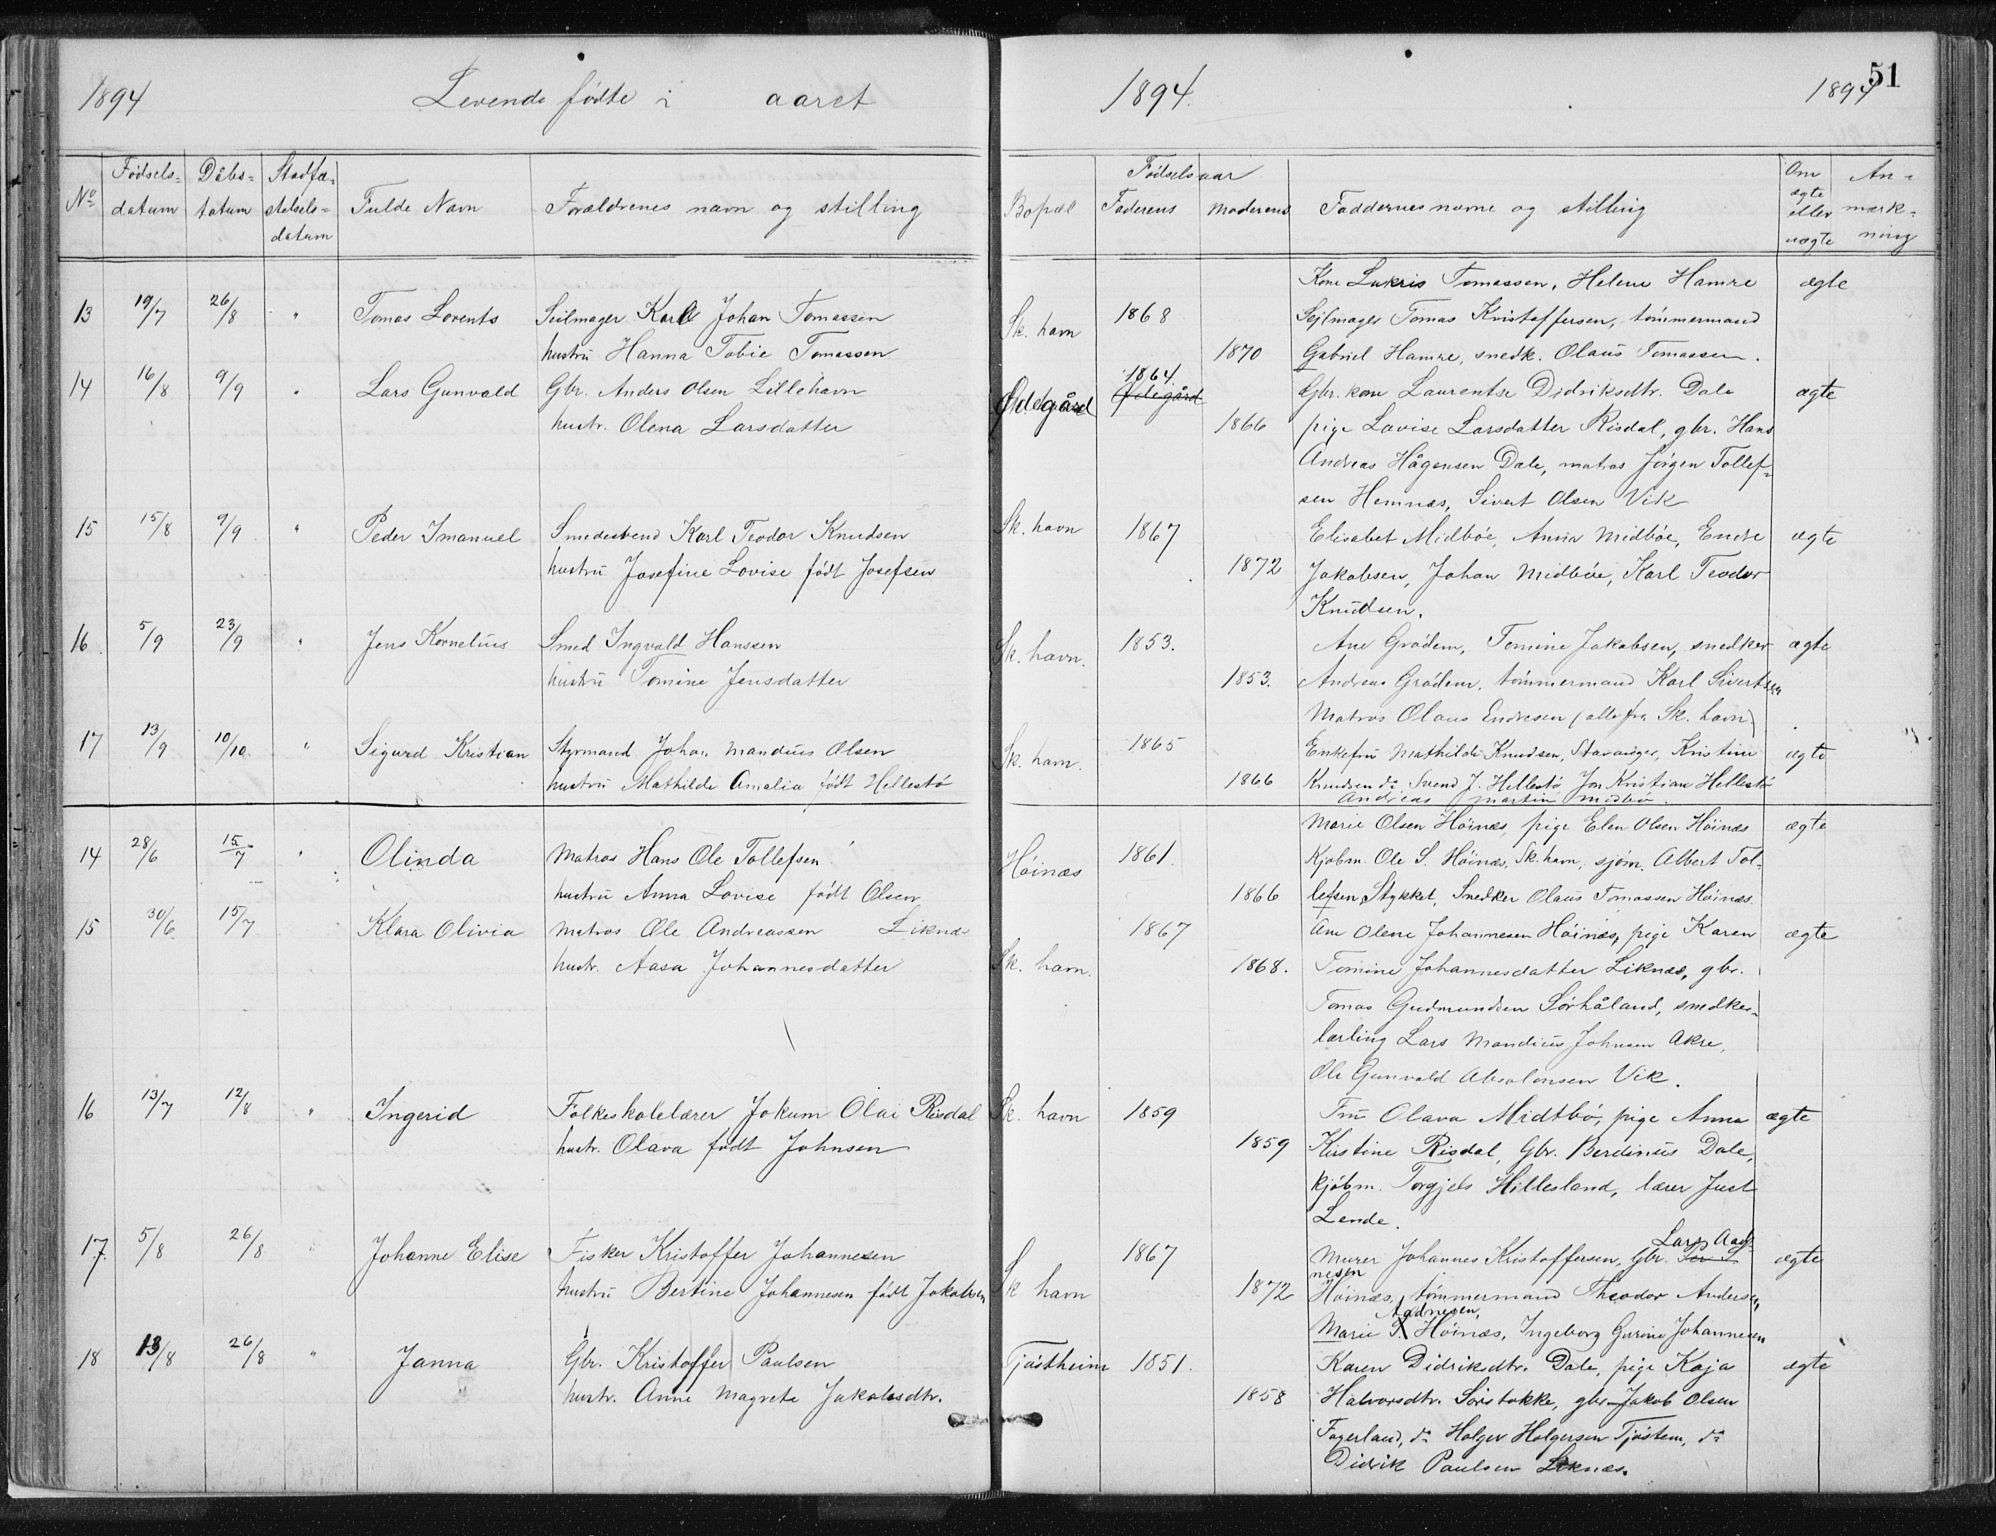 1894 Levende fødte i aaret 1894. 1894 51
No Fødselsdatum Dåbsdatum Stadfæstelsesdatum Fulde Navn Forældrenes navn og stilling Bopæl Fødselsaar Faderens Moderens Faddernes navne og stilling Om ægte eller uægte Anmærkning
Kone Lukris Tomassen, Helene Hamre ægte
13 19/7 26/8 " Tomas Lorents Seilmager Karl Johan Tomassen Sk. havn 1868 Sejlmager Tomas Kristoffersen, tømmermand
hustru Hanna Tobie Tomassen 1870 Gabriel Hamre, snedk. Olaus Tomassen.
14 16/8 9/9 " Lars Gunvald Gbr. Anders Olsen Lillehavn Ødegård 1864 Ødegård Gbr. kone Laurentse Didriksdtr. Dale ægte
hustr. Olena Larsdatter 1866 pige Lovise Larsdatter Risdal, gbr. Hans
Andreas Hågensen Dale, matros Jörgen Tollef-
sen Hemnæs, Sivert Olsen Vik
15 15/8 9/9 " Peder Imanuel Smedesvend Karl Teodor Knudsen Sk. havn 1867 Elisabet Midböe, Anna Midböe, Endre ægte
hustru Josefine Lovise födt Josefsen 1872 Jakobsen, Johan Midböe, Karl Teodor
Knudsen.
16. 5/9 23/9 " Jens Kornelius Smed Ingvald Hanssen Sk. havn. 1853. Ane Grödem, Tomine Jakobsen, snedker ægte
hustru Tomine Jensdatter 1853. Andreas Grödem, tömmermand Karl Sivertsen
Matros Olaus Endresen (alle fra Sk. havn)
17 13/9 10/10 " Sigurd Kristian Styrmand Johan Mandius Olsen Sk. havn. 1865 Enkefru Mathilde Knudsen, Stavanger, Kristine ægte
hustru Mathilde Amalia födt Hellestö 1866 Knudsen do Svend J. Hellestö Jon Kristian Hellestö
Andreas Martin Midbö.
Marie Olsen Höinæs, pige Elen Olsen Höinæs ægte
14 28/6 15/7 " Olinda Matros Hans Ole Tollefsen Höinæs 1861. Kjöbm. Ole S. Höinæs, Sk. havn, sjöm. Albert Tol-
hustru Anna Lovise födt Olsen 1866 lefsen Stykket, Snedker Olaus Tomassen Höinæs.
15 30/6 15/7 Klara Olivia Matros Ole Andreassen Liknæs 1867 Ane Olene Johannesen Höinæs, pige Karen ægte
hustr. Aasa Johannesdatter Sk. havn. 1868. Tomine Johannesdatter Liknæs, gbr.
Tomas Gudmundsen Sörhåland, snedker-
lærling Lars Mandius Johnsen Akre,
Ole Gunvald Absalonsen Vik.
16 13/7 12/8 " Ingerid Folkeskolelærer Jokum Olai Risdal Sk. havn 1859 Fru Olava Midtbö, pige Anna ægte
hustr. Olava födt Johnsen 1859 Kirstine Risdal, Gbr. Berdinus Dale,
kjöbm. Torgjels Hillesland, lærer Just
Lende.
17. 5/8 26/8 " Johanne Elise Fisker Kristoffer Johannesen Sk havn 1867 Murer Johannes Kristoffersen, Gbr. Lars Aad-
nesen ægte
hustru Bertine Johannesen födt Jakobsen 1872 Höinæs, tömmermand Theodor Andersen,
Marie Aadnesen, Höinæs, Ingeborg Gurine Johannesen
18 13/8 26/8 " Janna Gbr. Kristoffer Paulsen Tjöstheim 1851. Karen Didriksdtr. Dale, pige Kaja ægte
hustr. Anne Magrete Jakobsdtr. 1858 Halvorsdtr. Sörstokke, gbr. Jakob Olsen
Fagerland, do Holger Holgersen Tjöstem, do
Didrik Paulsen Liknæs.